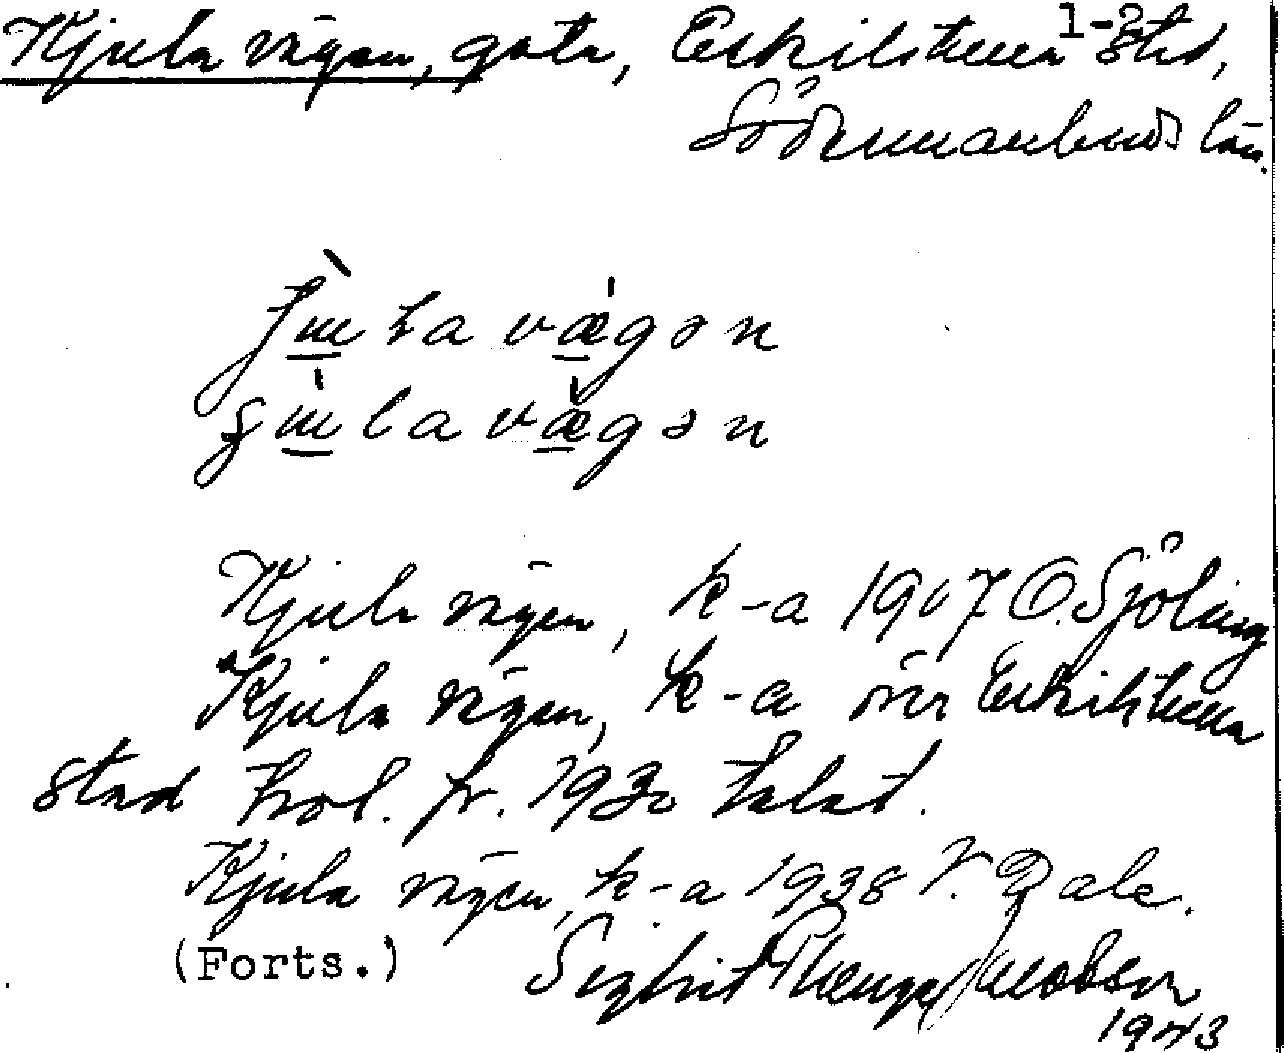 1-2
Kjula vägen, gata, Eskilstuna stad,
Södermanlands län.
vägən
vägən
Kjula vägen, k-a 1907 O. Sjöling
Kjula vägen, k-a över Eskilstuna
stad kol. fr. 1930 talet.
Kjula vägen, k-a 1938 V. Dale.
(Forts.)
Sigfrid Jacobson
1943